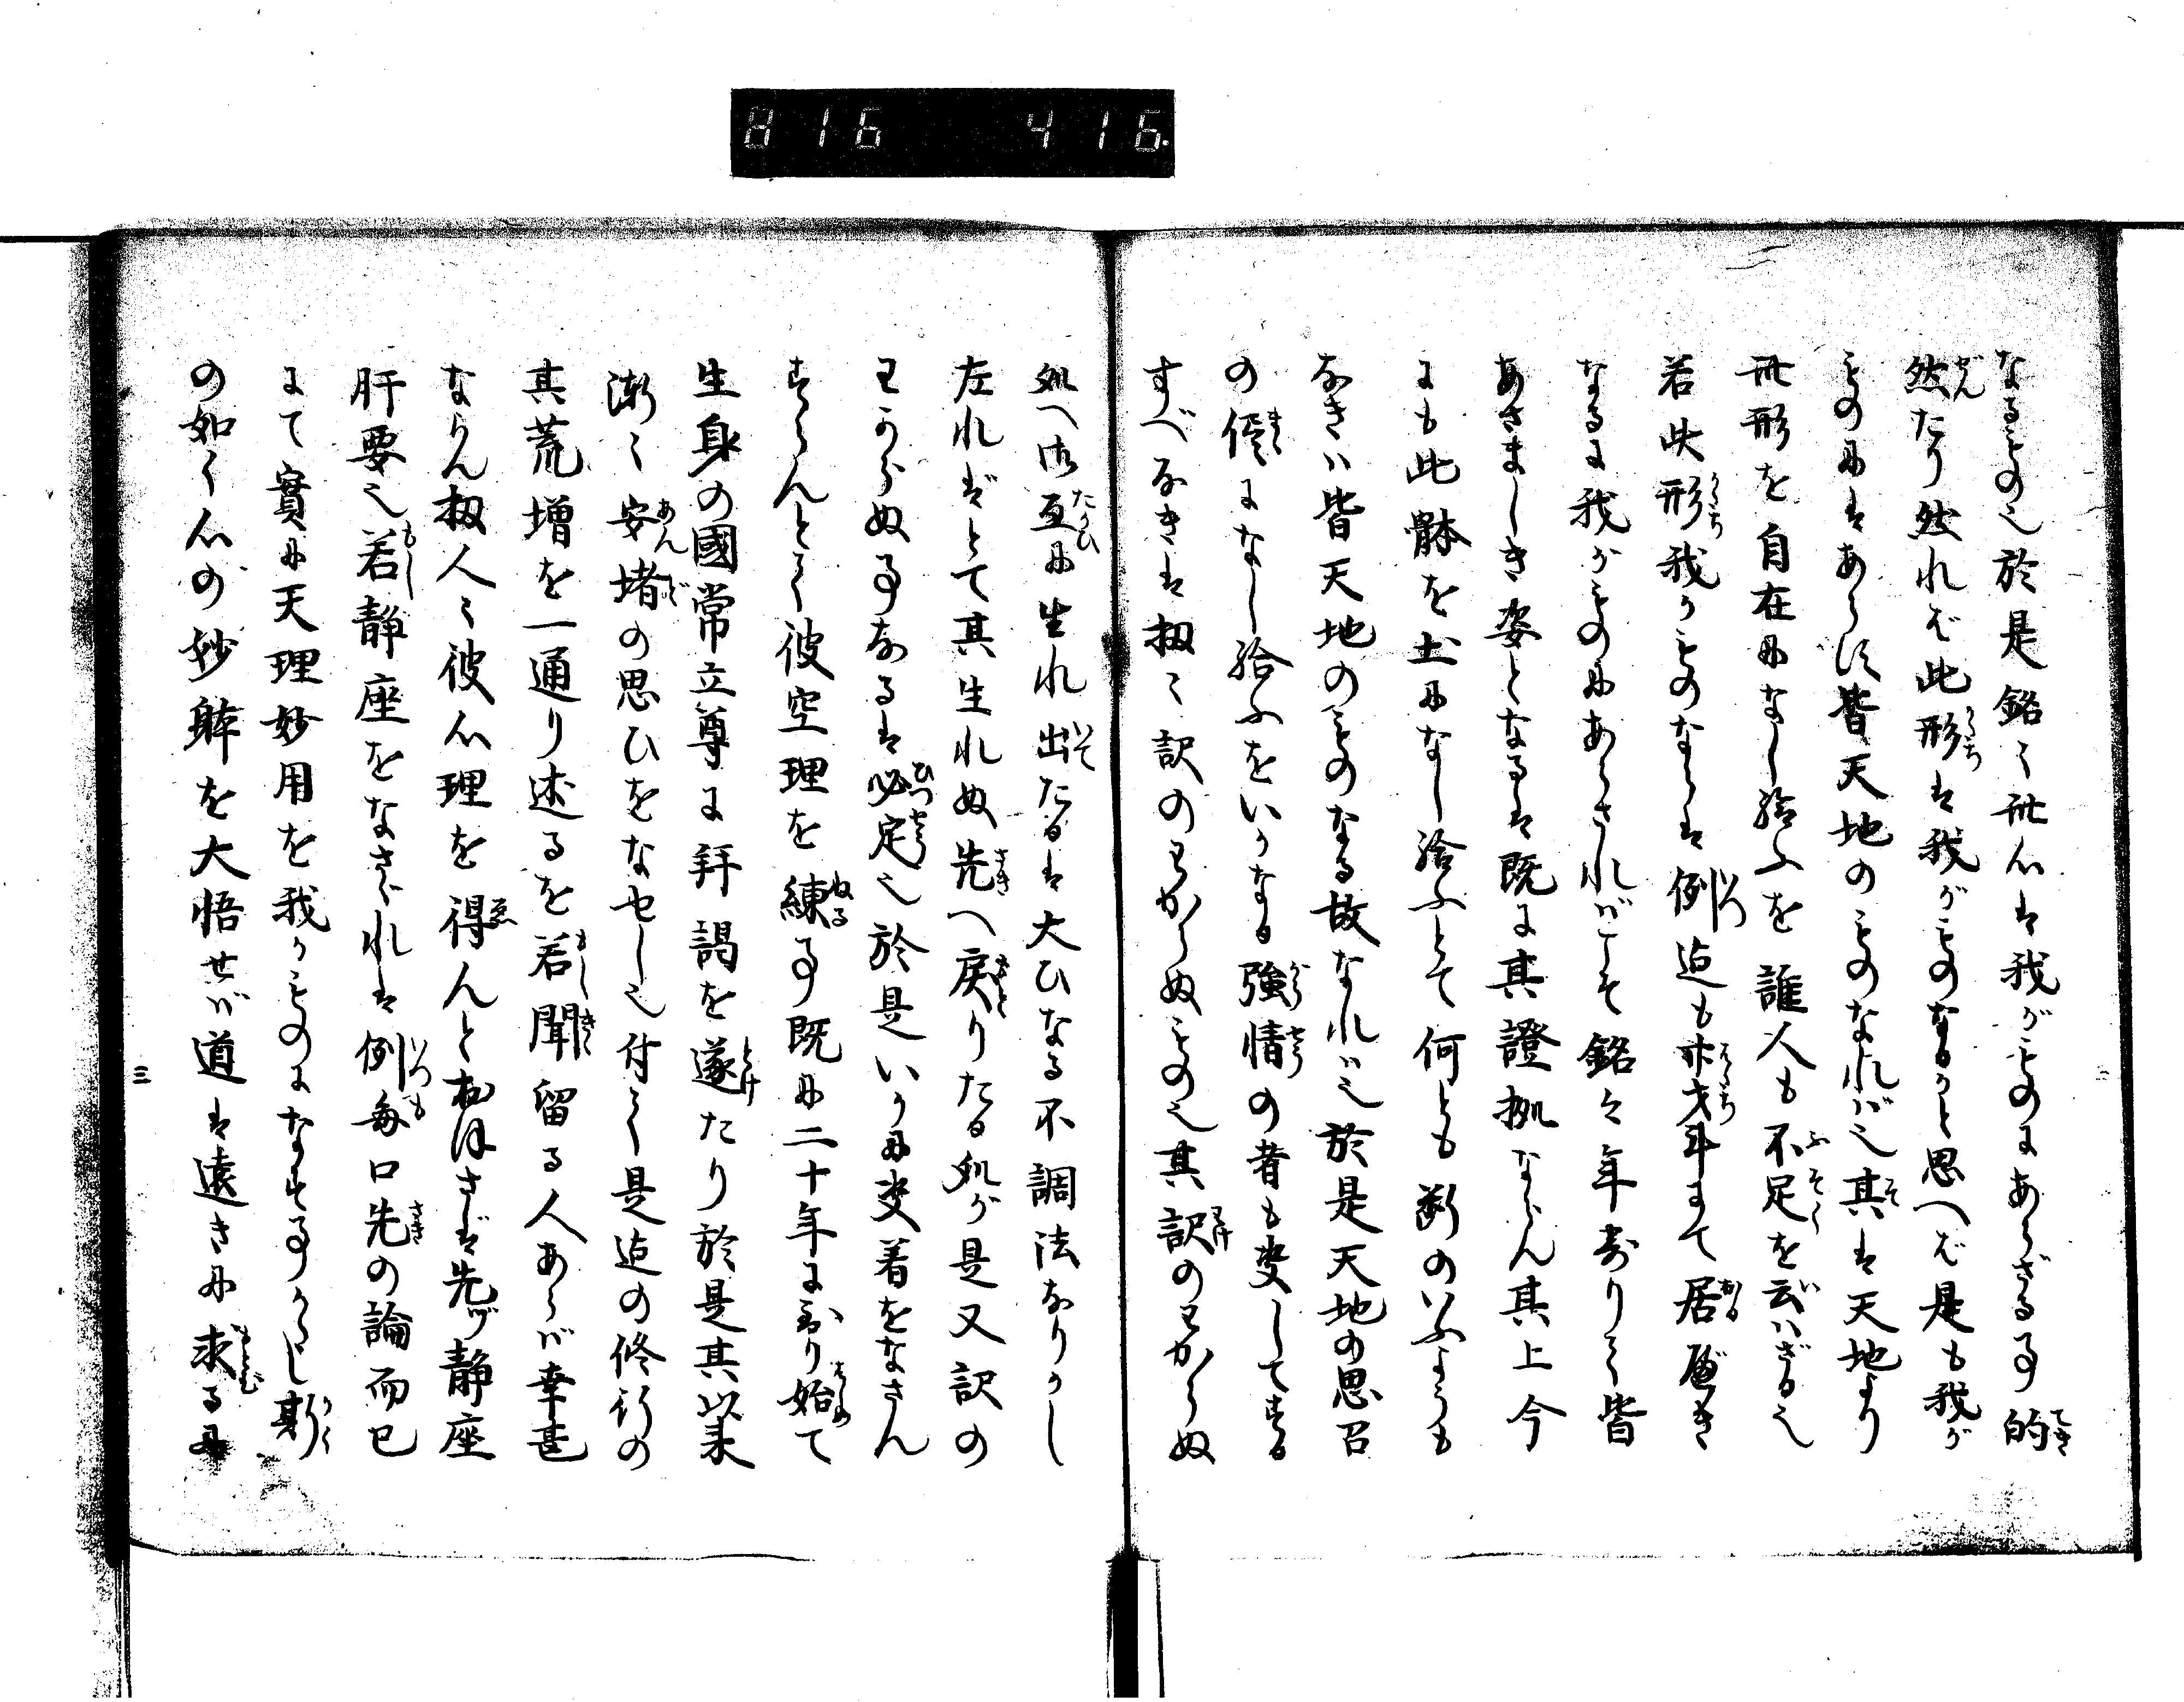 816 416.
なるもの也於是銘〻此心は我がものにあらざる事的
然たり然れば此形は我がものなるかと思へば是も我が
ものにはあらず皆天地のものなれば也其は天地より
此形を自在になし給ふを誰人も不足を云はざる也
若此形我がものならは例迄も廿才斗にて居度き
なるに我がものにあらざればこそ銘々年寄りて皆
あさましき姿となるは既に其證拠ならん其上今
にも此骵を土になし給ふとて何とも断のいふようも
なきハ皆天地のものなる故なれハ也於是天地の思召
の儘になし給ふをいかなる強情の者も変してする
すべなきは扨〻訳のわからぬもの也其訳のわからぬ
処へ御互に生れ出たるは大ひなる不調法なりかし
左ればとて其生れぬ先へ戻りたる処が是又訳の
わからぬ事なるは必定也於是いかに変着をなさん
すらんとて彼空理を練る事既に二十年に至り始て
生身の國常立尊に拝謁を遂たり於是其以来
漸〻安堵の思ひをなせし也付て是迄の修行の
其荒増を一通り述るを若聞留る人あらば幸甚
ならん扨人〻彼心理を得んとおほさば先づ静座
肝要也若静座をなさゞれは例毎口先の論而已
にて實に天理妙用を我がものになす事かたし斯
の如く心の妙躰を大悟せば道は遠きに求るに
三